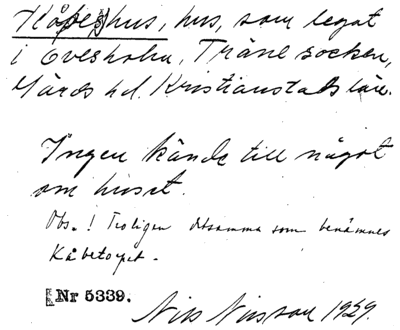 Kåpeshus, hus, som legat
i Evesholm, Träne socken,
Gärds hd. Kristianstads län.
Ingen kände till något
om huset.
Obs.! Troligen detsamma som benämnes
Kåbetorpet.
Nr 5339.
Nils Nilsson 1929.